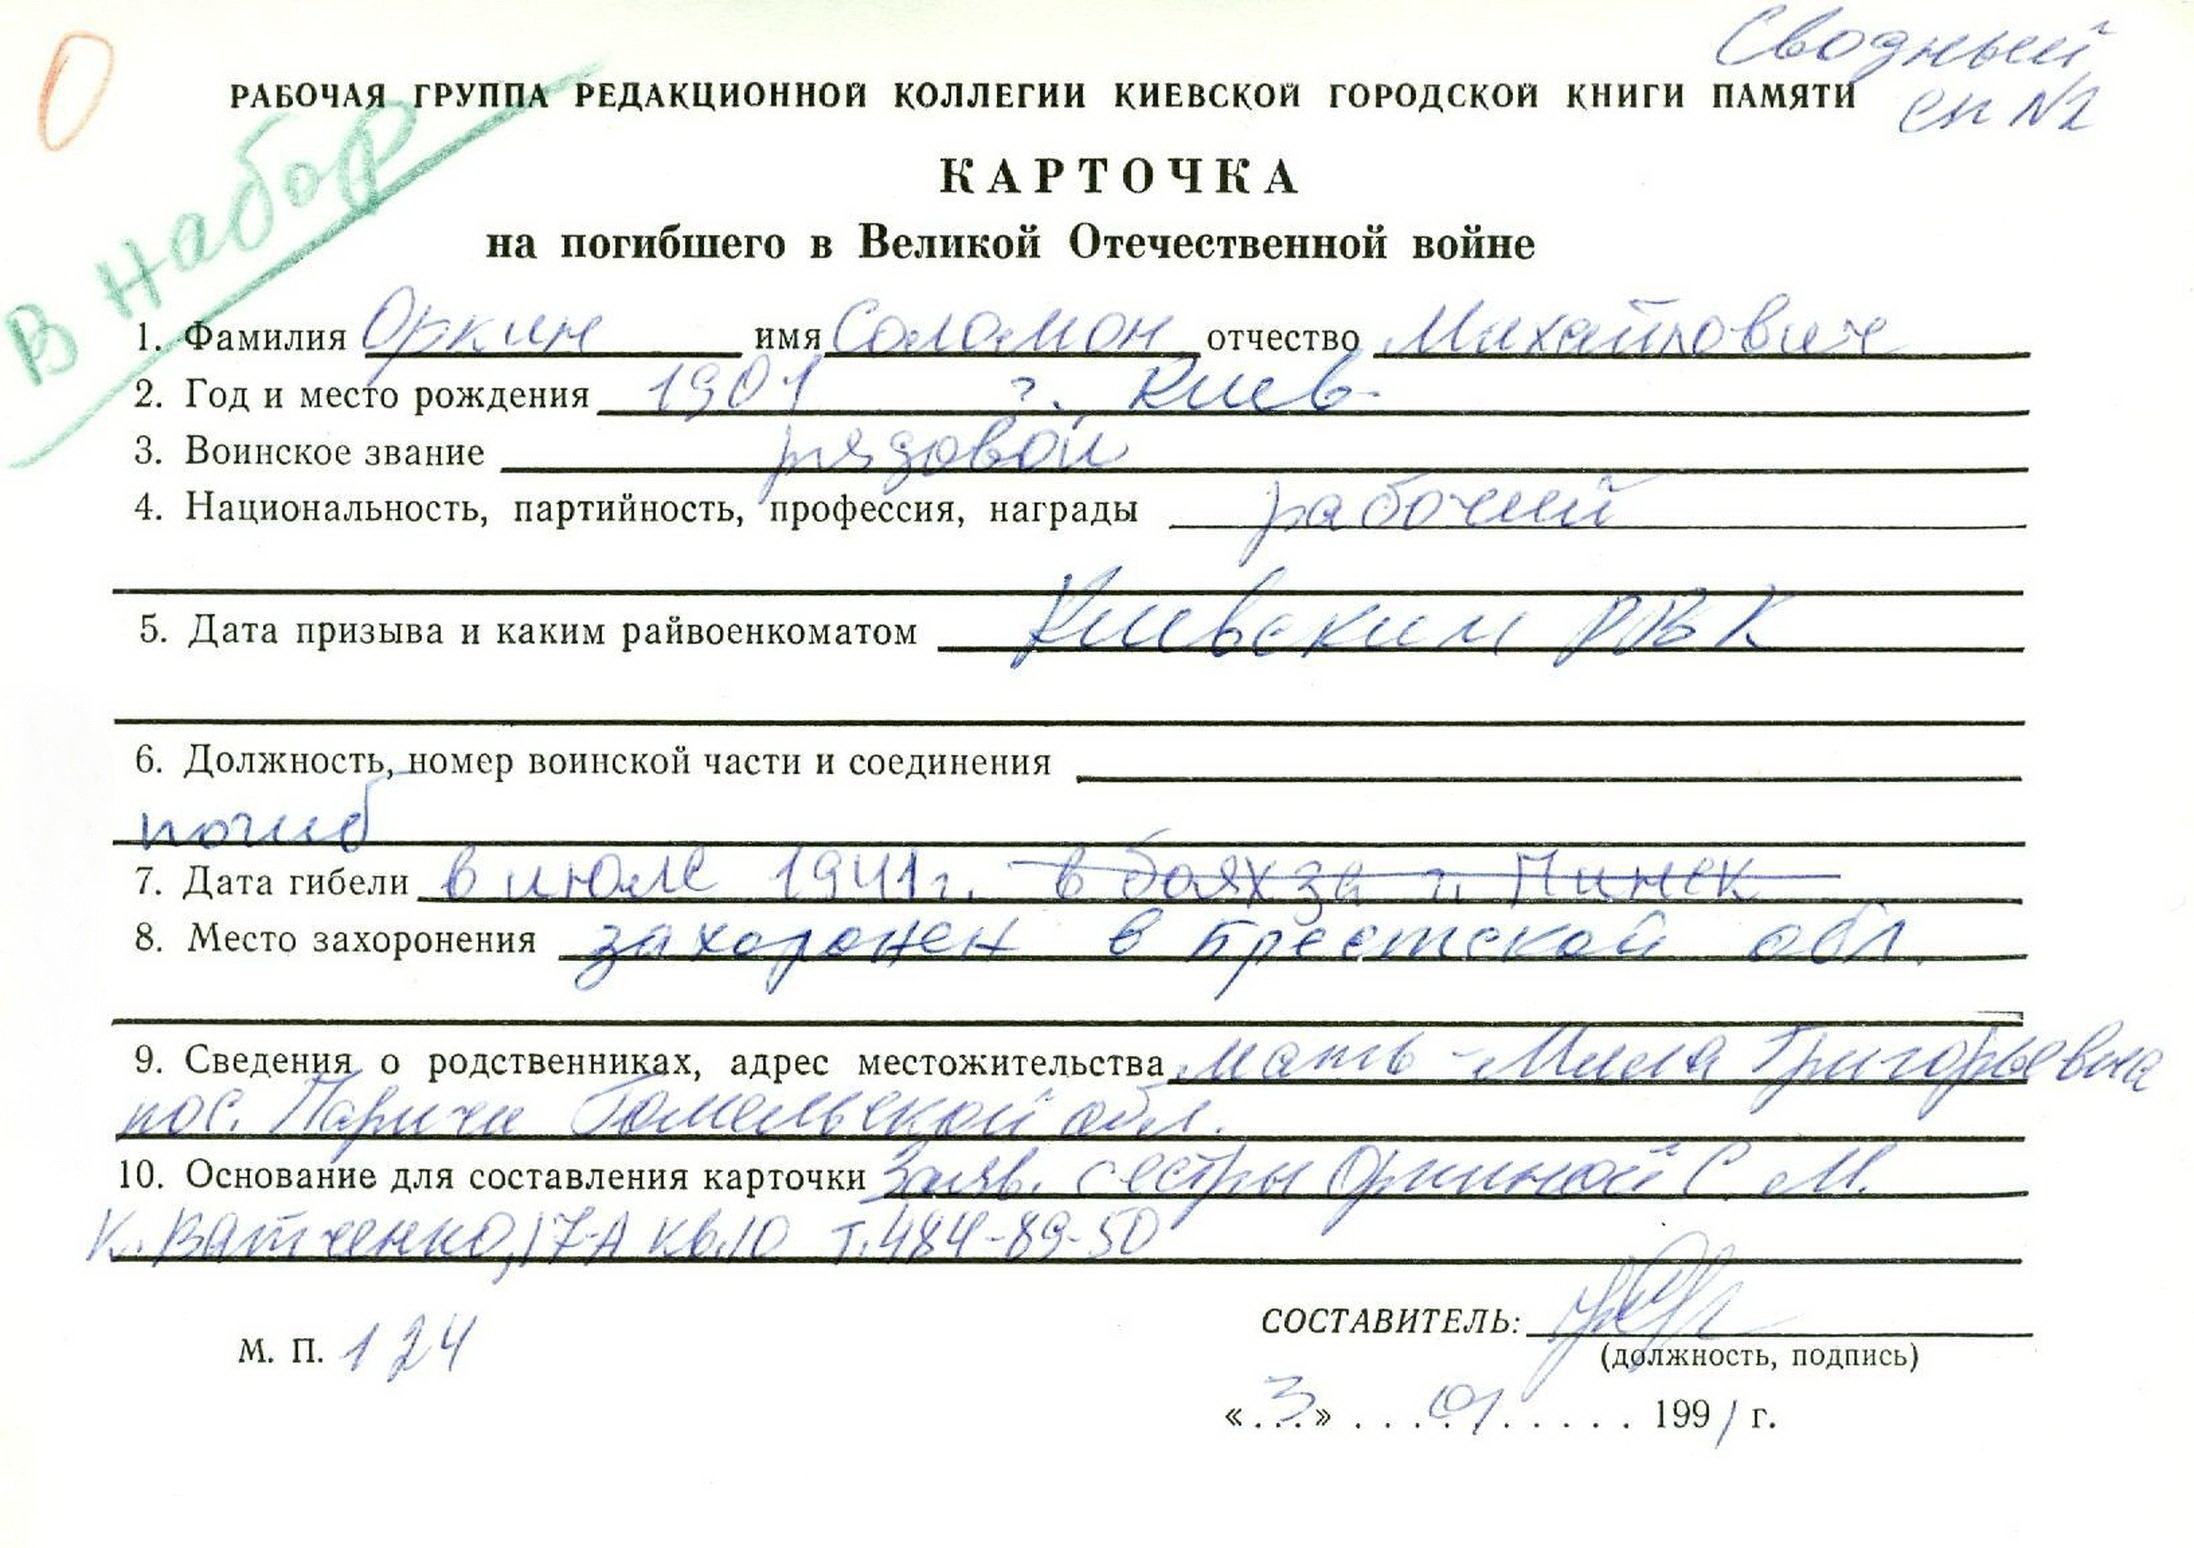 О
Сводный
РАБОЧАЯ ГРУППА РЕДАКЦИОННОЙ КОЛЛЕГИИ КИЕВСКОЙ ГОРОДСКОЙ КНИГИ ПАМЯТИ
сп N2
В набор
КАРТОЧКА
на погибшего в Великой Отечественной войне
1. Фамилия Оркин имя Соломон отчество Михайлович
2. Год и место рождения 1901 г. Киев
3. Воинское звание рядовой
4. Национальность, партийность, профессия, награды рабочий
5. Дата призыва и каким райвоенкоматом Киевским РВК
6. Должность, номер воинской части и соединения
погиб
7. Дата гибели в июле 1941 г. в боях за г. Пинск
8. Место захоронения захоронен в Брестской обл.
9. Сведения о родственниках, адрес местожительства мать - Мила Григорьевна
пос. Паричи Гомельской обл.
10. Основание для составления карточки Заяв. сестры Оркиной С. М.
К. Ватченко, 17-А кв. 10 т. 484-89-50
СОСТАВИТЕЛЬ:
М. П. 124
(должность, подпись)
«3» 01 1991 г.